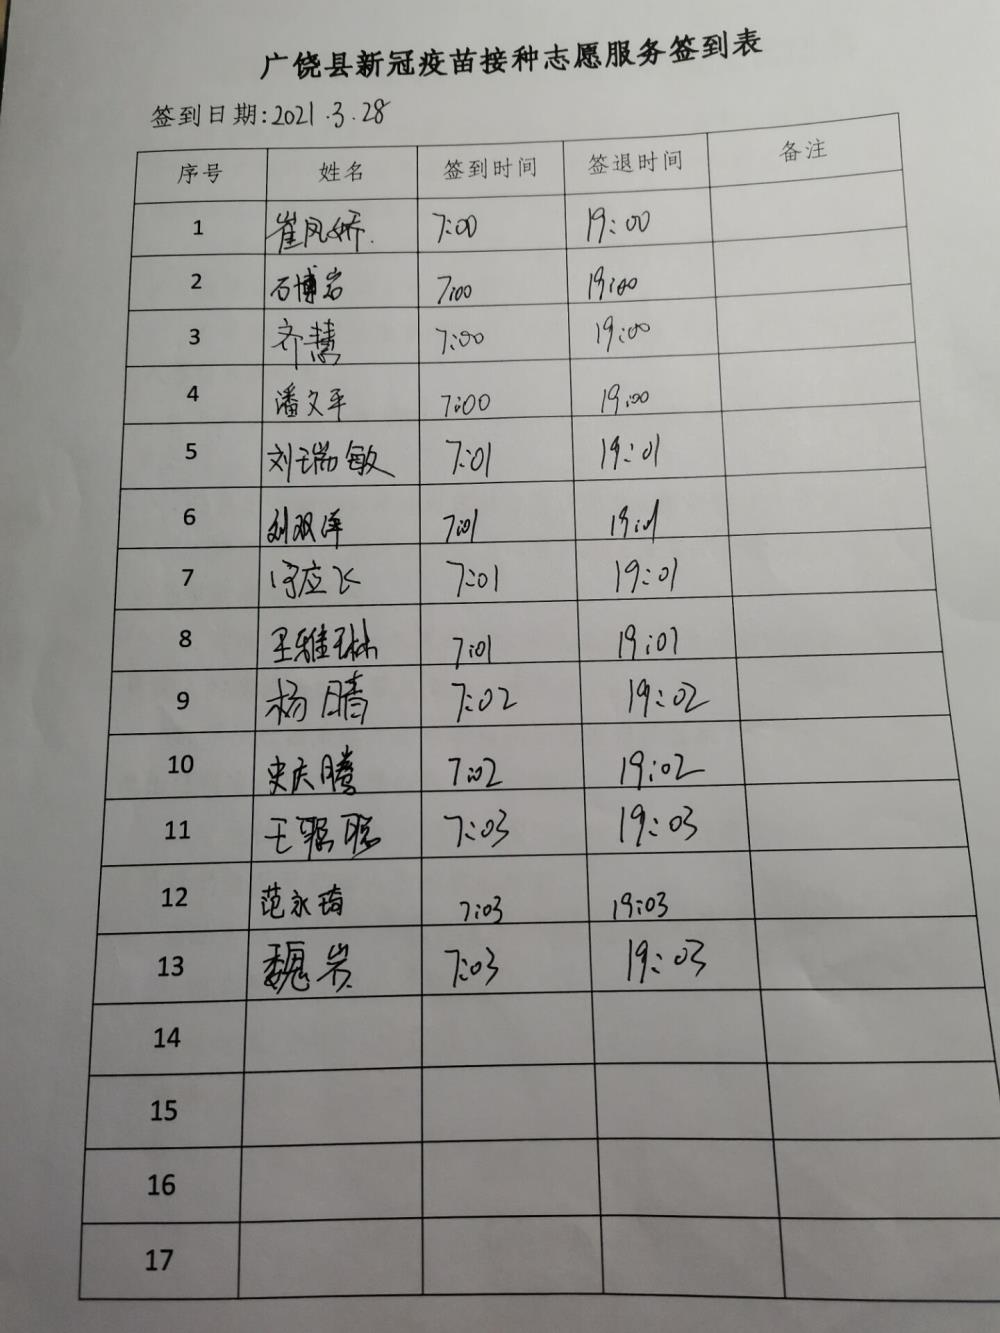 广饶县新冠疫苗接种志愿服务签到表
签到日期:2021.3.28
序号 姓名 签到时间 签退时间 备注
1 崔凤娇 7:00 19:00
2 石博岩 7:00 19:00
3 齐慧 7:00 19:00
4 潘文平 7:00 19:00
5 刘瑞敏 7:01 19:01
6 刘双泽 7:01 19:01
7 应飞 7:01 19:01
8 王雅琳 7:01 19:01
9 杨晴 7:02 19:02
10 史庆腾 7:02 19:02
11 王聪聪 7:03 19:03
12 范永琦 7:03 19:03
13 魏岩 7:03 19:03
14
15
16
17